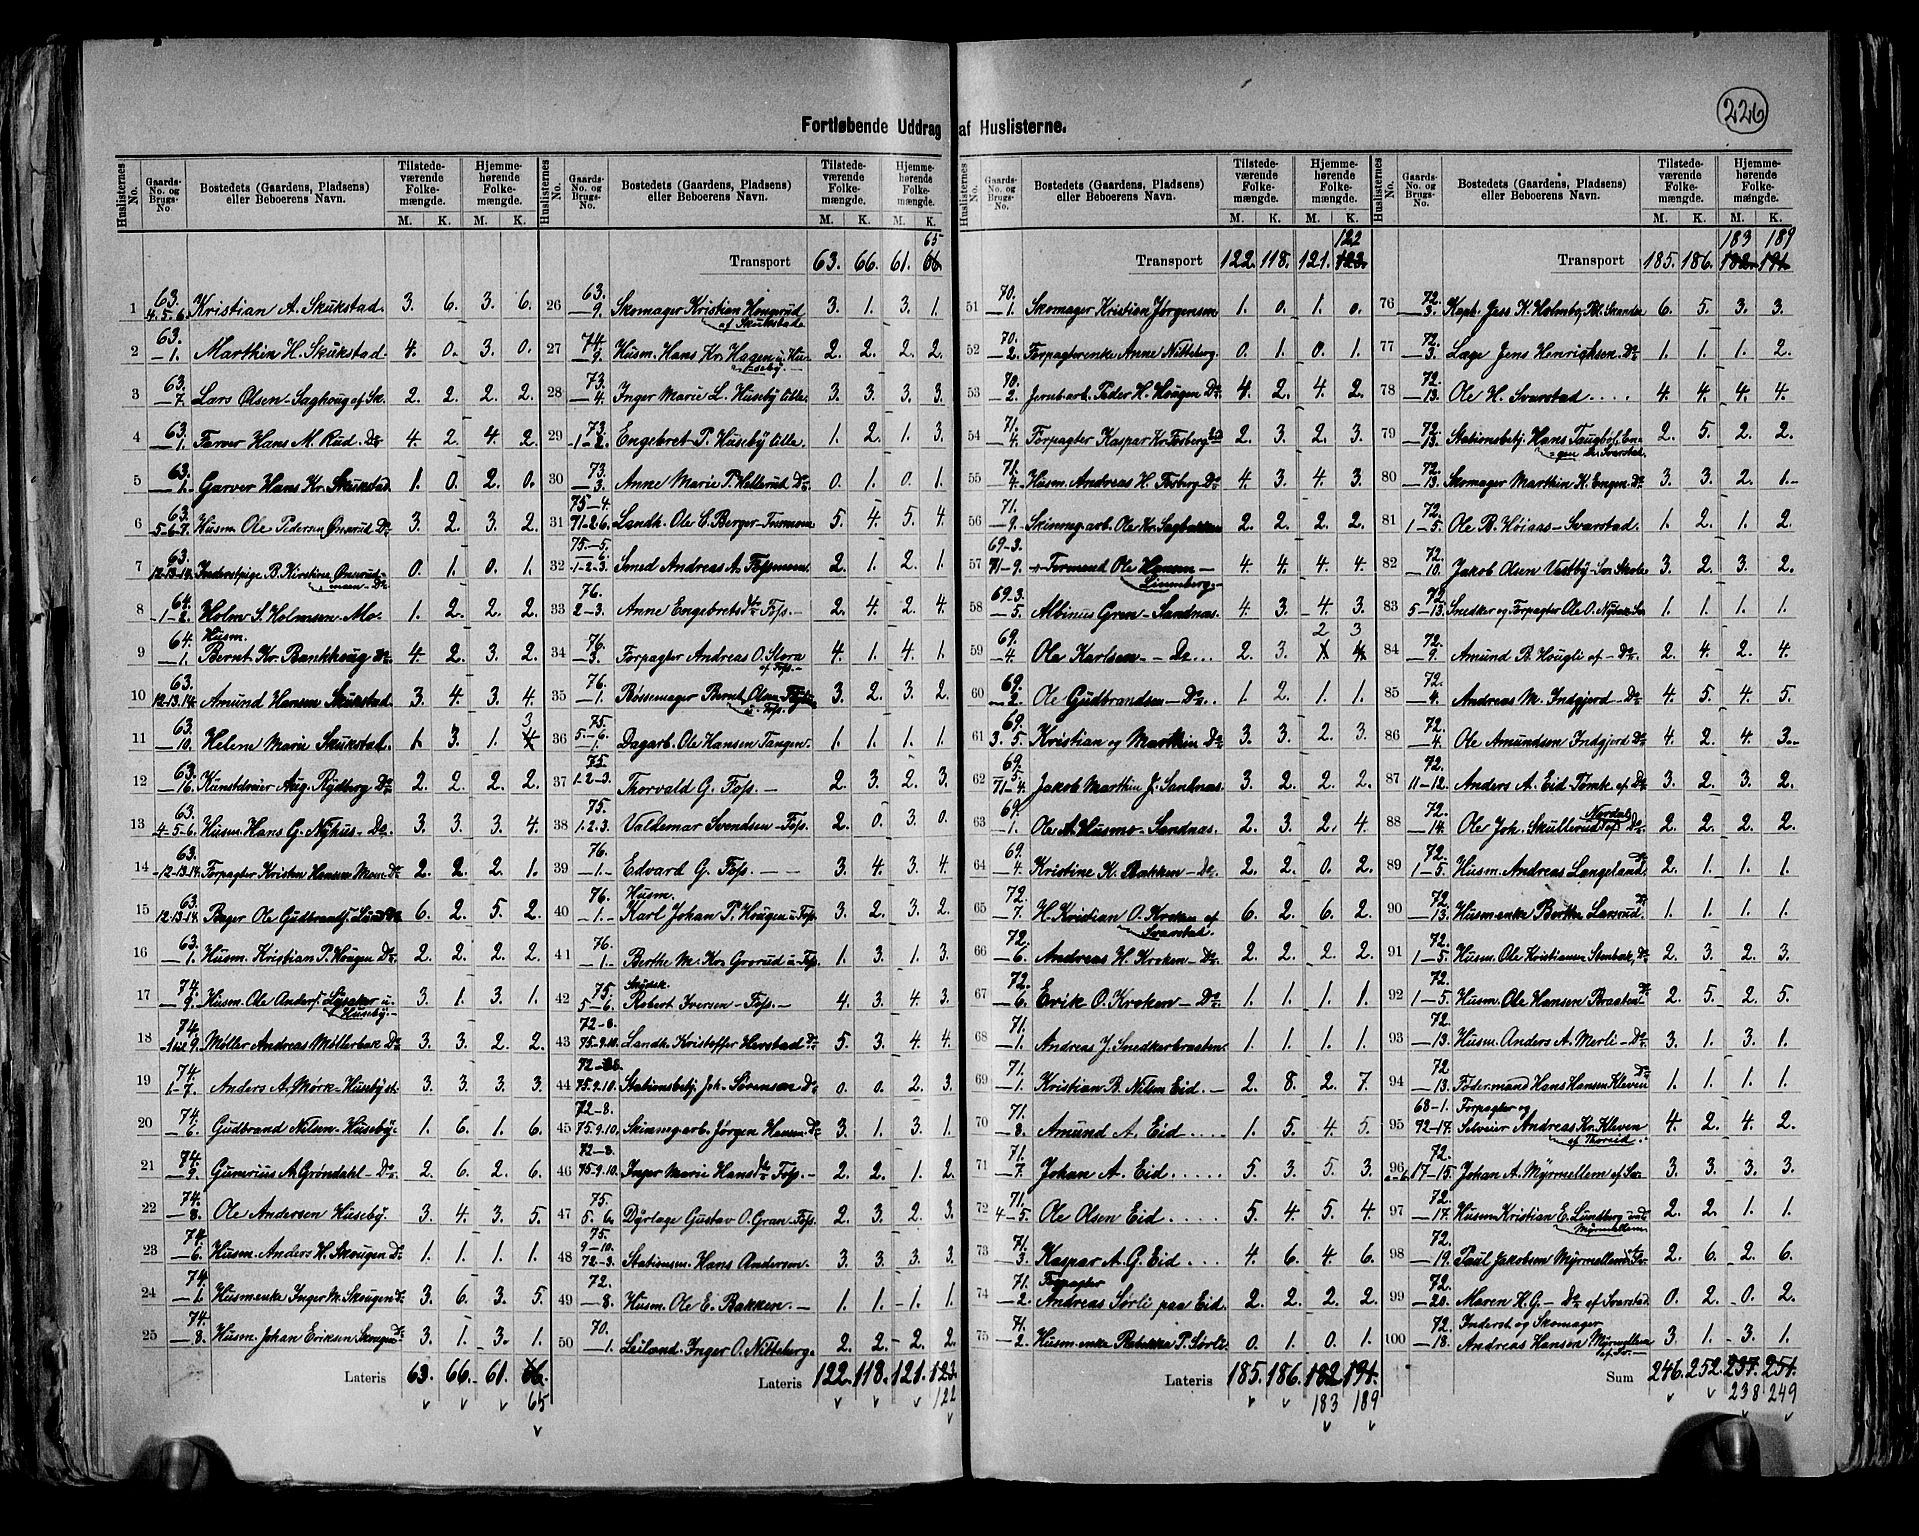 226
Fortløbende Uddrag af Huslisterne.
Huslisternes No. | Gaards-No. og Brugs-No. | Bostedets (Gaardens, Pladsens) eller Beboerens Navn. | Tilstedeværende Folkemængde. M. K. | Hjemmehørende Folkemængde. M. K.
1 63. 4.5.6. Kristian A. Skukstad. 3. 6. 3. 6.
2 63. 1. Marthin H. Skukstad. 4. 0. 3. 0.
3 63. 7. Lars Olsen Saghoug af Sk. 2. 2. 2. 2.
4 63. 1. Farver Hans M. Rud. Do 4. 2. 4. 2.
5 63. 1. Garver Hans Kr. Skukstad 1. 0. 2. 0.
6 63. 5-6-7. Husm. Ole Pedersen Ønsrud Do 3. 2. 3. 2.
7 63. 12-13-14. Inderstpige B. Kirstine Do 0. 1. 0. 1.
8 64. 1-2. Holm S. Holmsen Mo 1. 2. 2. 2.
9 64. 1. Husm. Bernt Kr. Bankhoug Do 4. 2. 3. 2.
10 63. 12-13.14. Amund Hansen Skukstad. 3. 4. 3. 4.
11 63. 10. Helene Marie Skukstad. 1. 3. 1. 4 3
12 63. 16. Kunstdreier Aug. Rydberg Do 2. 2. 2. 2.
13 63. 4-5-6. Husm. Hans G. Nyhus Do. 3. 3. 3. 4.
14 63. 12-13.14. Forpagter Kristen Hansen Do 2. 2. 2. 1.
15 63. 12.13.14. Bager Ole Gudbrandsf. Do 6. 2. 5. 2.
16 63. 1. Husm. Kristian P. Hougen Do. 2. 2. 2. 2.
17 74. 9. Husm. Ole Andersf. Lysaker u. Huseby. 3. 1. 3. 1.
18 74. 9. Møller Andreas Møllerbak Do 3. 3. 2. 2.
19 74. 1-7. Anders A. Mørk Huseby st. 3. 3. 3. 3.
20 74. 6. Gudbrand Nilsen Huseby. 1. 6. 1. 6.
21 74. 9. Gunerius A. Grøndahl Do. 2. 6. 2. 6.
22 74. 8. Ole Andersen Huseby. 3. 4. 3. 5.
23 74. 6. Husm. Anders H. Skougen Do 1. 1. 1. 1.
24 74. 1. Husm.enke Inger M. Skougen Do 3. 6. 3. 5.
25 74. 8. Husm. Johan Eriksen Skougen Do 3. 1. 3. 1.
Lateris 63. 66. 61. 66. 65
Huslisternes No. | Gaards-No. og Brugs-No. | Bostedets (Gaardens, Pladsens) eller Beboerens Navn. | Tilstedeværende Folkemængde. M. K. | Hjemmehørende Folkemængde. M. K.
Transport 63. 66. 61. 66. 65
26 63. 9. Skomager Kristian Hougerud af Skukstad. 3. 1. 3. 1.
27 74. 9. Husm. Hans Kr. Hagen u. Huseby. 2. 2. 2. 2.
28 73. 4. Inger Marie L. Huseby lille. 3. 3. 3. 3.
29 73. 1-2. Engebret P. Huseby lille 1. 2. 1. 3.
30 73. 3. Anne Marie P. Hellerud Do 0. 1. 0. 1.
31 75-4. 71-2.6. Landh. Ole C. Berger 5. 4. 5. 4.
32 75.-5. 6. 1-2.3. Smed Andreas A. Fossmoen 2. 1. 2. 1.
33 76. 2-3. Anne Engebretsd. Foss. 2. 4. 2. 4.
34 76. 3. Forpagter Andreas O. Stora af Foss. 4. 1. 4. 1.
35 76. 1. Bøssemager Bernt Olsen u. Foss. 3. 2. 3. 2.
36 75. 5-6. 1. Dagarb. Ole Hansen Tangen. 1. 1. 1. 1.
37 75. 1.2-3. Thorvald G. Foss. 2. 3. 2. 3.
38 75. 1.2.3. Valdemar Svendsen Foss. 2. 0. 3. 0.
39 76. 1. Edvard G. Foss. 3. 4. 3. 4.
40 76. 1. Husm. Karl Johan P. Hougen u. Foss. 3. 2. 3. 2.
41 76. 1. Berthe M. Kr. Grorud u. Foss. 1. 3. 1. 3.
42 75. 5-6. Robert Iversen Foss. 4. 3. 4. 3.
43 72-8. 75.9.10. Landh. Kristoffer Herstad Do 5. 3. 4. 4.
44 75.9.10. Stationsbetj. Joh. Sørensen Do 0. 0. 2. 3.
45 72-8. 75.9.10. Skinnegarb. Jørgen Hansen Do 3. 1. 3. 1.
46 72-8. 75.9.10. Inger Marie Hansd. Foss. 2. 2. 1. 2.
47 75. 5.6. Dyrlæge Gustav O. Gran Foss. 2. 3. 2. 3.
48 75. 9-10. 72-3. Stationsm. Hans Andersen. 3. 3. 3. 3.
49 72. 8. Husm. Ole E. Bakken. 1. 1. 1. 1.
50 70. 1. Leiland. Inger O. Nitteberg. 2. 2. 2. 2.
Lateris 122. 118. 121. 123. 122
Huslisternes No. | Gaards-No. og Brugs-No. | Bostedets (Gaardens, Pladsens) eller Beboerens Navn. | Tilstedeværende Folkemængde. M. K. | Hjemmehørende Folkemængde. M. K.
Transport 122. 118. 121. 123. 122
51 70. 1. Skomager Kristian Jørgensen 1. 0. 1. 0.
52 70. 2. Forpagterenke Anne Nitteberg. 0. 1. 0. 1.
53 70. 2. Jernb.arb. Peder H. Hougen Do 4. 2. 4. 2.
54 71. 4. Forpagter Kaspar Kr. Fosberg Eid 2. 3. 2. 3.
55 71. 4. Husm. Andreas H. Fosberg Do 4. 3. 4. 3.
56 71. 9. Skinneg.arb. Ole Kr. Sagbakken 2. 2. 2. 2.
57 69-3. 71-9. Formand Ole Hansen Linneberg. 4. 4. 4. 4.
58 69.3. 5. Albinus Gren Sandnæs. 4. 3. 4. 3.
59 69. 4. Ole Karlsen Do 2. 3. 2 3
60 69. 2. Ole Gudbrandsen Do. 1. 2. 1. 1.
61 69. 3. 5. Kristian og Marthin Do 3. 3. 2. 3.
62 69. 5. 71-4. Jakob Marthin J. Sandnæs. 3. 2. 2. 2.
63 69. 1. Ole A. Husmo Sandnæs. 2. 3. 2. 4.
64 69. 4. Kristine K. Bakken Do. 2. 2. 0. 2.
65 72. 7. H. Kristian O. Kroken af Svarstad. 6. 2. 6. 2.
66 72. 6. Andreas H. Kroken Do. 2. 2. 2. 2.
67 72. 6. Erik O. Kroken Do. 1. 1. 1. 1.
68 71. 1. Andreas J. Snedkerbraaten. 1. 1. 1. 1.
69 71. 1. Kristian B. Nilsen Eid. 2. 8. 2. 7.
70 71. 8. Amund A. Eid 1. 5. 4. 5.
71 71. 7. Johan A. Eid 5. 3. 5. 3.
72 71. 4-5. Ole Olsen Eid 5. 4. 5. 4.
73 71. 3. Kaspar A. G. Eid 4. 6. 4. 6.
74 71. 2. Forpagter Andreas Sørli paa Eid. 2. 2. 2. 2.
75 71. 2. Husm.enke Rebekka P. Sørli. 0. 1. 0. 1.
Lateris 185. 186. 182 191. 183 189
Huslisternes No. | Gaards-No. og Brugs-No. | Bostedets (Gaardens, Pladsens) eller Beboerens Navn. | Tilstedeværende Folkemængde. M. K. | Hjemmehørende Folkemængde. M. K.
Transport 185. 186. 182. 191. 183 189
76 72. 3. Kapt. Jess K. Holmboe 6. 5. 3. 3.
77 72. 3. Læge Jens Henrichsen. Do 1. 1. 1. 2.
78 72. 13. Ole H. Svarstad 4. 4. 4. 4.
79 72. 13. Stationsbetj. Hans Taugbøl, Engen Svarstad. 2. 5. 2. 2.
80 72. 13. Skomager Marthin K. Engen. Do 3. 3. 2. 1.
81 72. 1-5. Ole B. Høiaas Svarstad. 1. 2. 1. 2.
82 72. 10. Jakob Olsen Vestby 3. 2. 3. 2.
83 72. 5-13. Snedker og Forpagter Ole O. 1. 1. 1. 1.
84 72. 9. Amund B. Hougli af Do. 2. 4. 2. 4.
85 72. 4. Andreas M. Indgjerd Do 4. 5. 4. 5.
86 72. 4. Ole Amundsen Indgjerd Do 4. 2. 4. 3.
87 72. 11-12. Anders A. Eid af Do. 3. 2. 3. 2.
88 72. 14. Ole Joh. Skullerud Nordal af Do. 2. 2. 2. 2.
89 72. 1-5. Husm. Andreas Langeland. Do 2. 1. 1. 1.
90 72. 13. Husm.enke Berthe Larsrud. Do 1. 1. 1. 1.
91 72. 1-5. Husm. Ole Kristiansen Stenbæk. Do 2. 3. 2. 3.
92 72. 1-5. Husm. Ole Hansen Braaten Do 2. 5. 2. 5.
93 72. 13. Husm. Anders A. Merli Do 3. 1. 3. 1.
94 72. 13. Fodermand Hans Hansen Kleven Do 1. 1. 1. 1.
95 68-1. 72-14. Forpagter og Selveier Andreas Kr. Kleven af Thoreid. 4. 2. 4. 2.
96 72. 17-15. Johan A. Myrmellem af Sv. 3. 3. 3. 3.
97 72. 17. Husm. Kristian E. Lundberg under Myrmellem 2. 2. 1. 1.
98 72. 19. Paul Jakobsen Myrmellem Sv. 2. 6. 2. 6.
99 72. 20. Maren H. G. Do af Svarstad 0. 2. 0. 2.
100 72. 18. Inderst og Skomager Andreas Hansen Myrmellem af Sv. 3. 1. 3. 1.
Sum 246. 252. 237. 251. 238 249